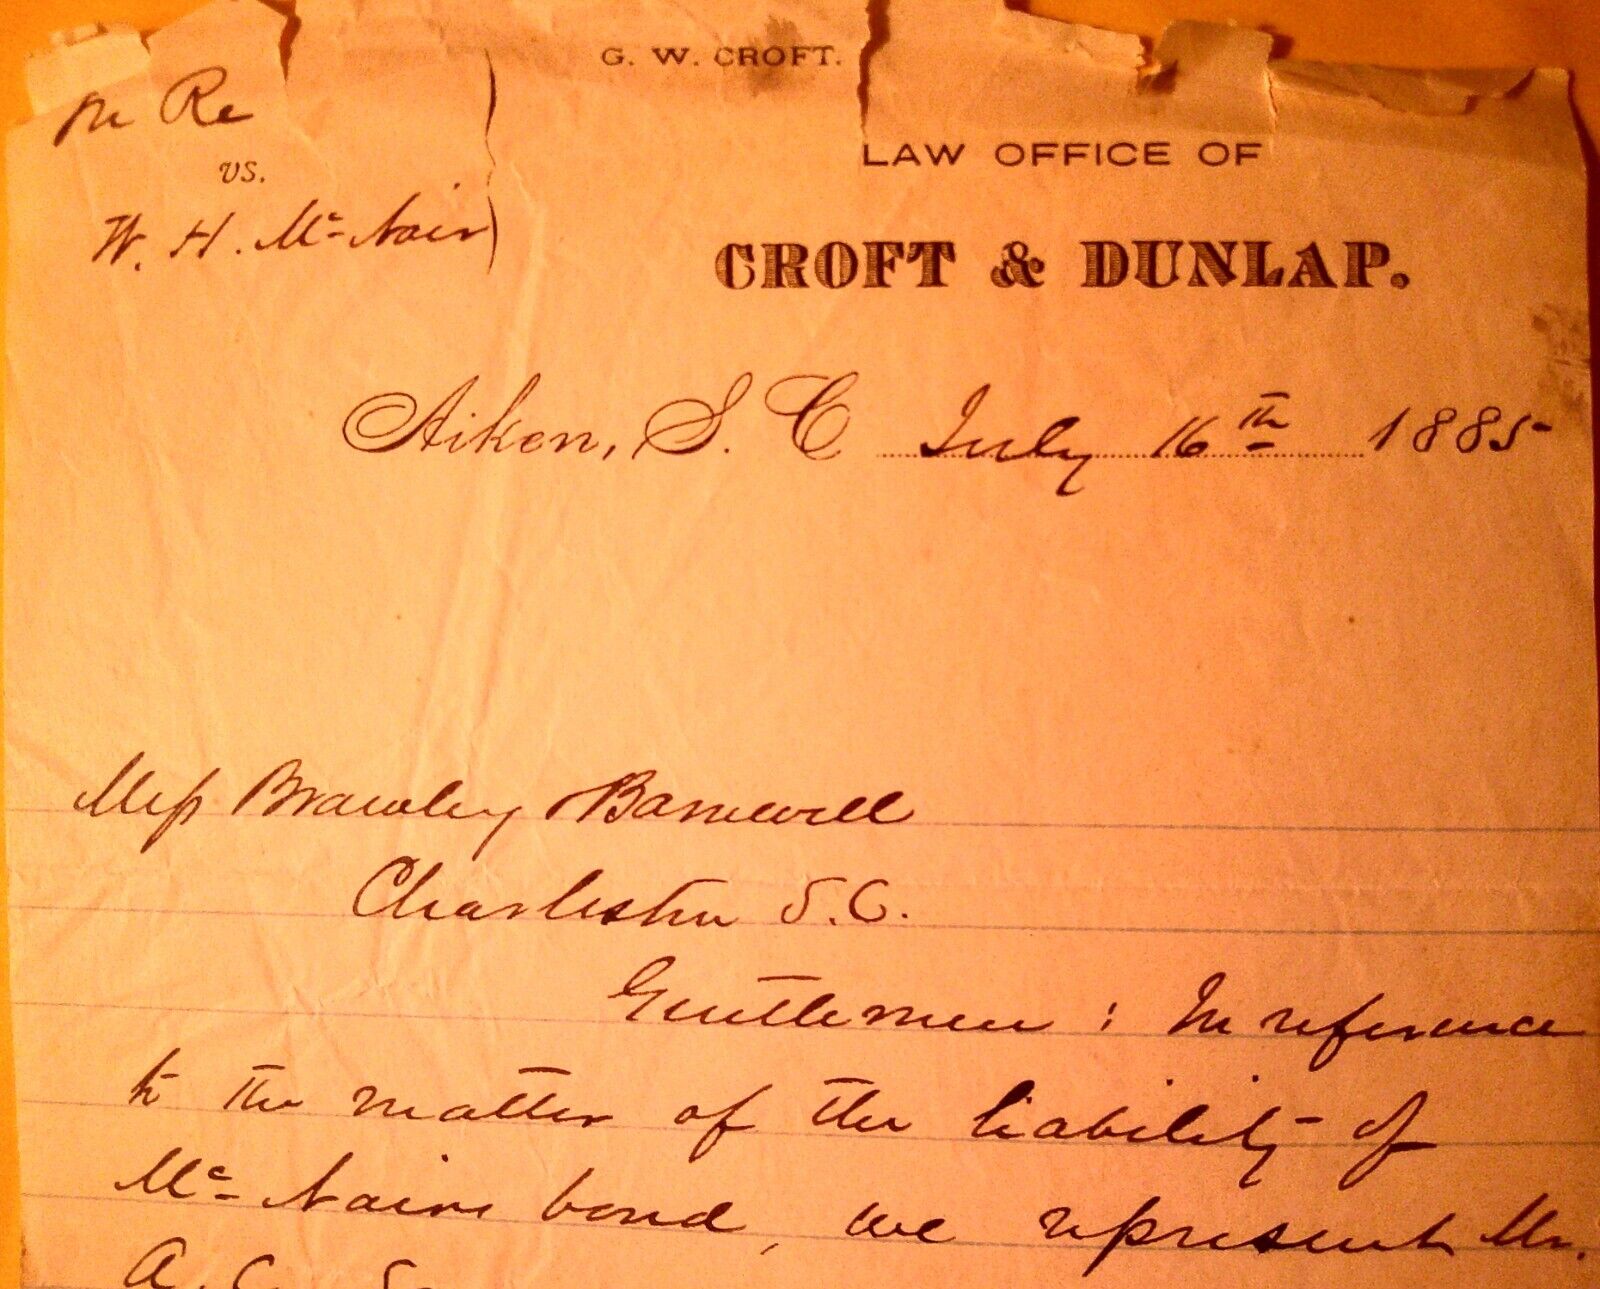 G. W. CROFT.
In Re
vs.
W. H. Mc Nair
LAW OFFICE OF
CROFT & DUNLAP.
Aiken, S. C. July 16th 1885
Mess Brawley Barnwell
Charleston S.C.
Gentlemen : In reference
to the matter of the liability of
Mc Nairs bond, we represent Mr.